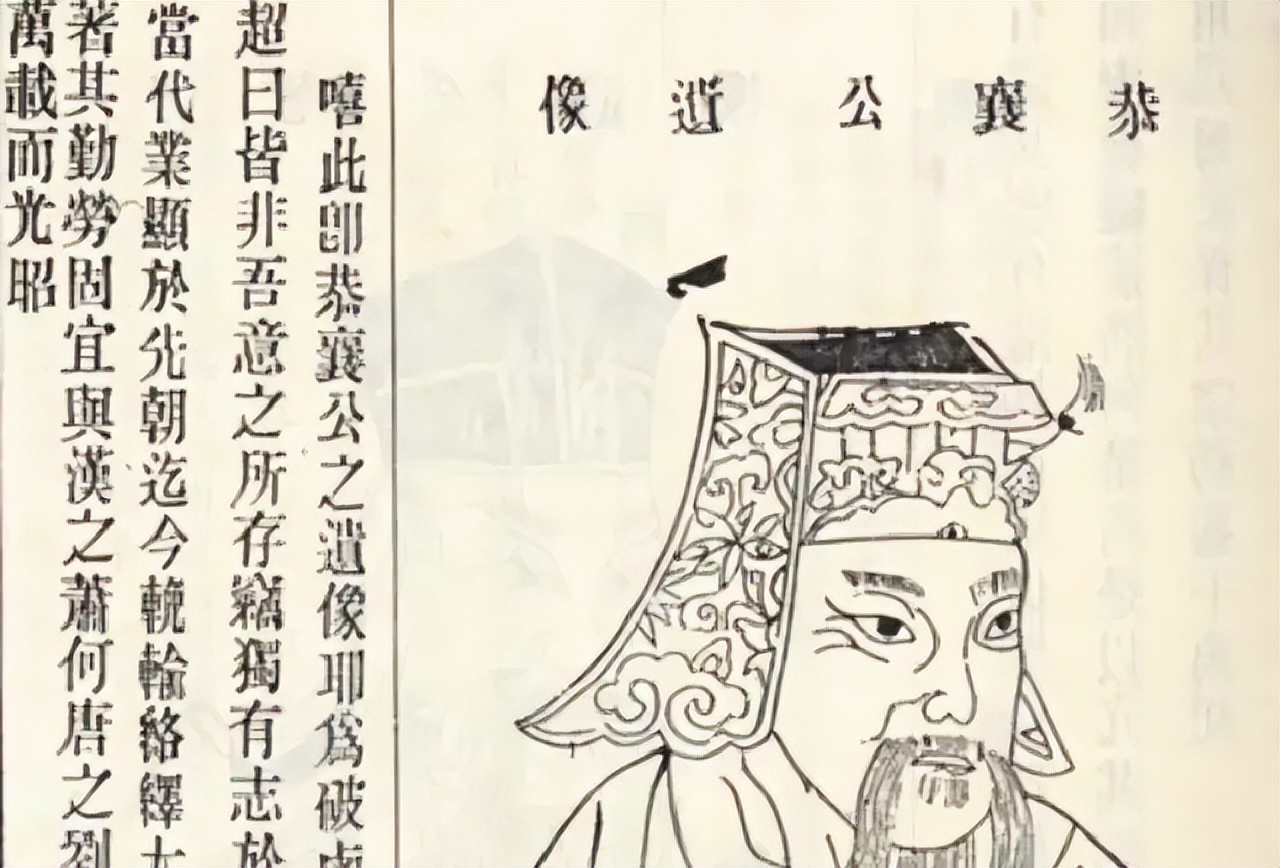 恭襄公遺像
嘻此卽恭襄公之遺像耶爲破
超曰皆非吾意之所存竊獨有志於
當代業顯於先朝迄今輓輪絡繹
著其勤勞固宜與漢之蕭何唐之劉
萬載而光昭